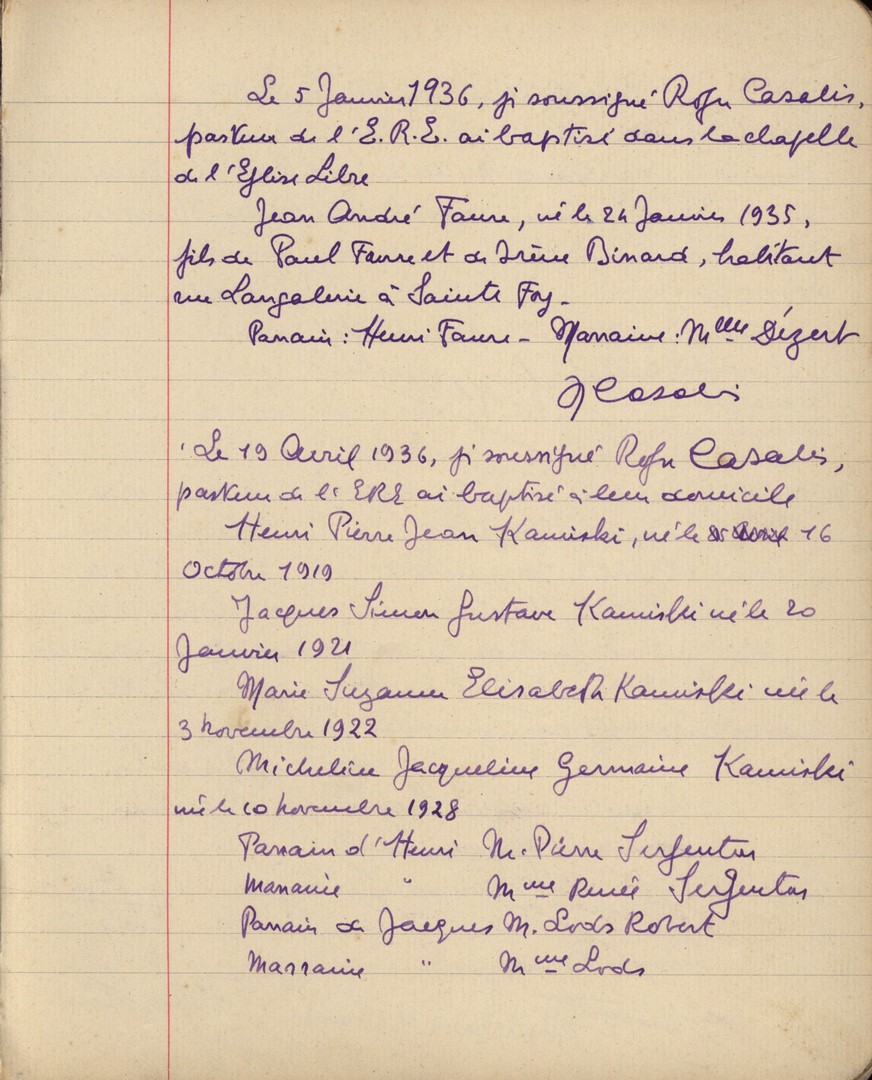 Le 5 Janvier 1936, je soussigné Roger Casalis,
pasteur de l'E.R.E. ai baptisé dans la chapelle
de l'Eglise Libre
Jean André Faure, né le 24 Janvier 1935,
fils de Paul Faure et de Irène Binard, habitant
rue Langalerie à Sainte Foy -
Parrain : Henri Faure - Marraine : Mlle Dézert
R Casalis
Le 19 Avril 1936, je soussigné Roger Casalis,
pasteur de l'ERE ai baptisé à leur domicile
Henri Pierre Jean Kaminski, né le 16
Octobre 1919
Jacques Simon Gustave Kaminski né le 20
Janvier 1921
Marie Suzanne Elisabeth Kaminski née le
3 novembre 1922
Micheline Jacqueline Germaine Kaminski
née le 10 novembre 1928
Parrain d'Henri M. Pierre
Marraine " Mme Renée
Parrain de Jacques M. Lods Robert
Marraine " Mme Lods